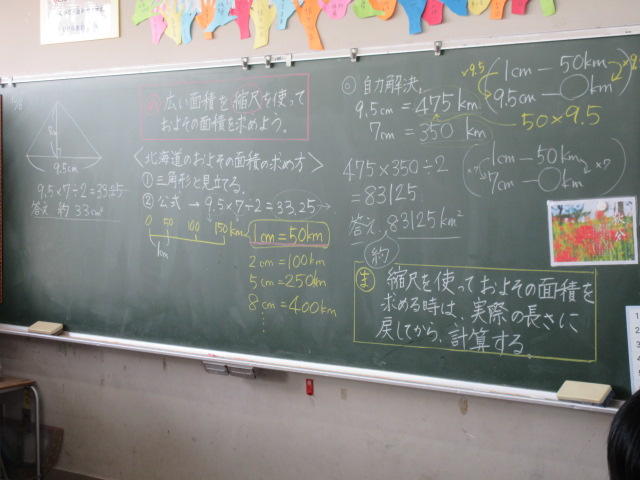 9.5cm
9.5×7÷2=33.25
答え 約 33cm²
広い面積を縮尺を使って
およその面積を求めよう。
〈北海道のおよその面積の求め方〉
①三角形と見立てる。
②公式 → 9.5×7÷2=33.25
0 50 100 150km
1cm=50km
2cm=100km
5cm=250km
8cm=400km
○自力解決
9.5cm=475km
7cm=350km
50×9.5
475×350÷2
=83125
答え 83125km²
約
×9.5
1cm—50km
9.5cm—○km
×9.5
1cm—50km
7cm—○km
×7
×7
ま
縮尺を使っておよその面積を
求める時は、実際の長さに
戻してから、計算する。